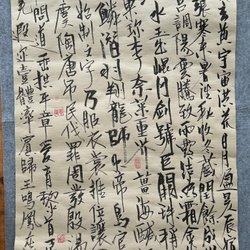 玄黃宇宙洪荒日月盈昃辰
寒來暑往秋收冬藏閏餘成
呂調陽雲騰致雨露結為霜
水玉出崑岡劍號巨闕珠稱
珍李柰菜重芥薑海鹹
鱗潛羽翔龍師火帝鳥官
始制文字乃服衣裳推位讓
虞陶唐弔民伐罪周發殷湯
問道垂拱平章愛育黎首
邇壹體率賓歸王鳴鳳在